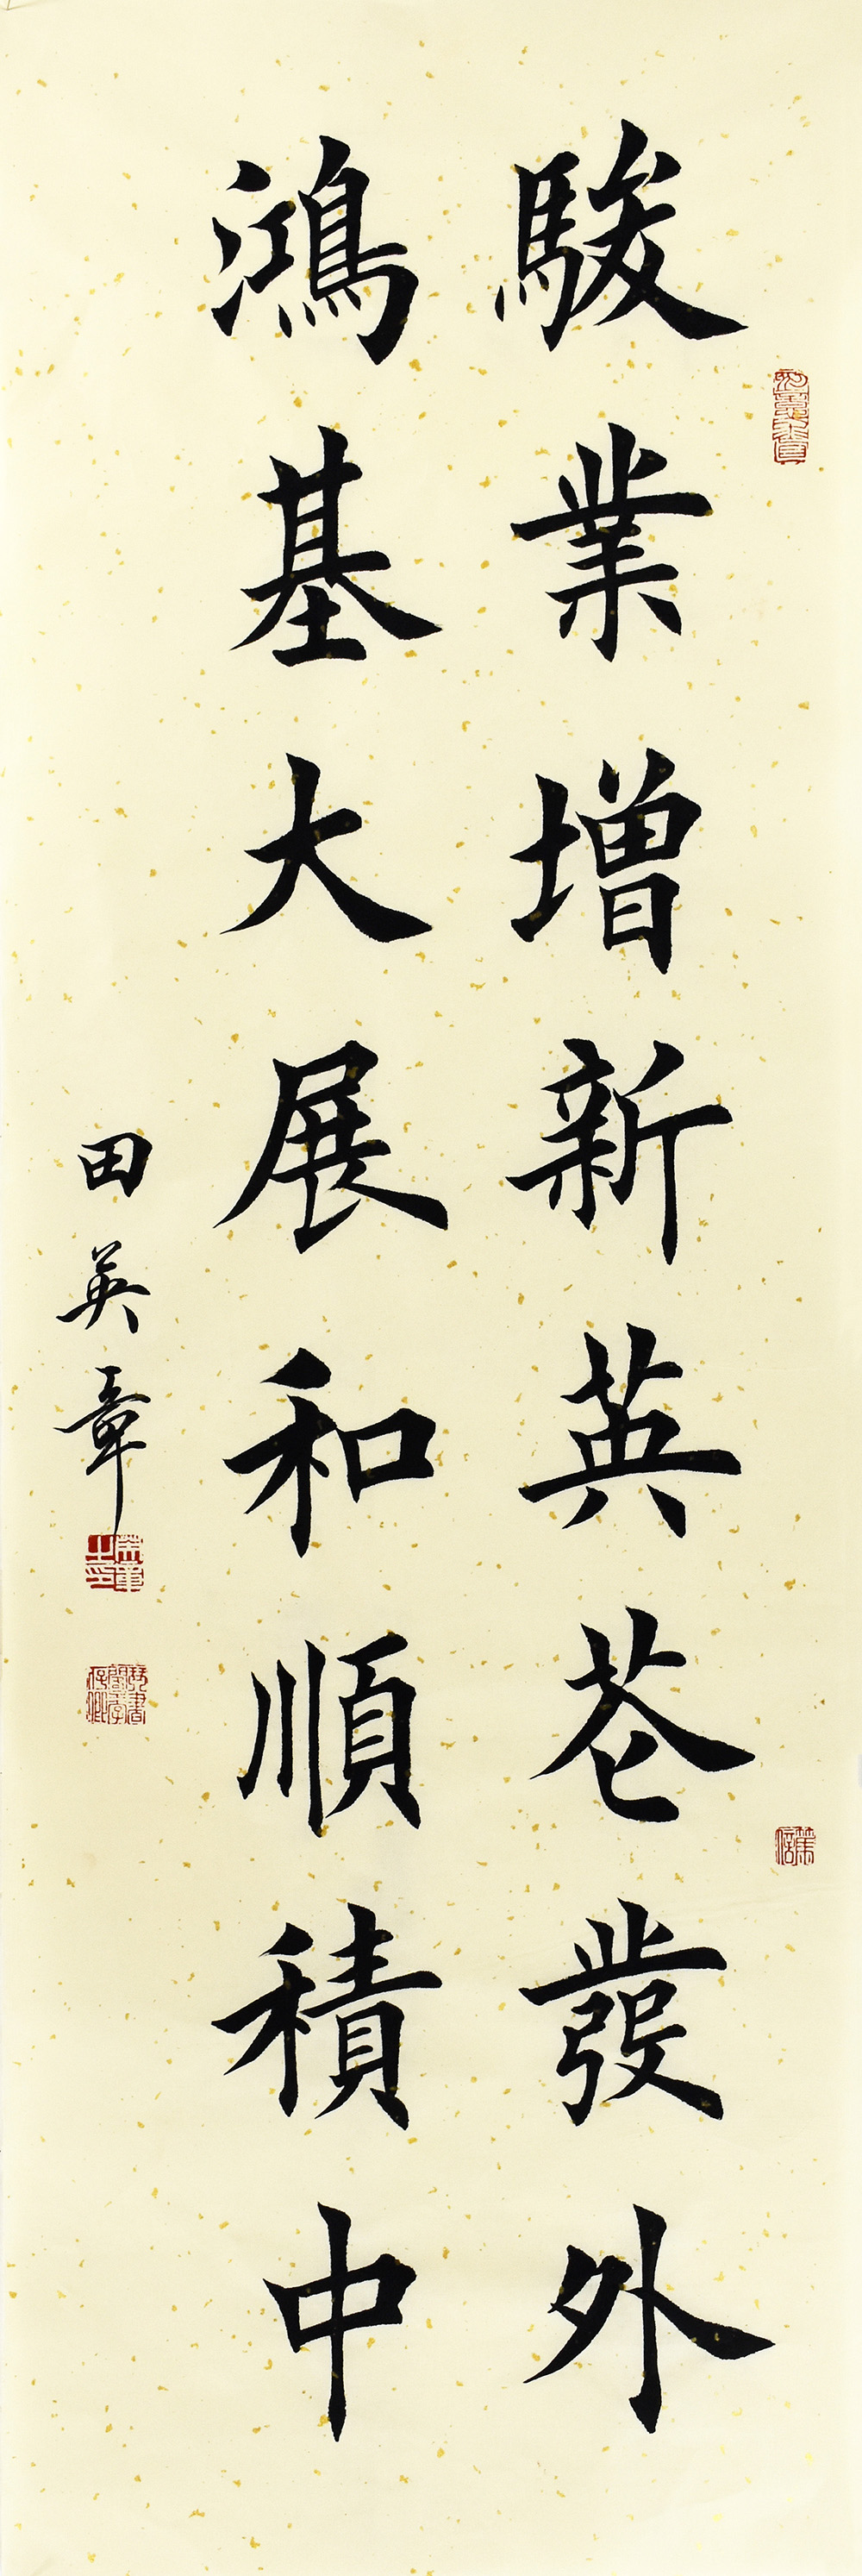 駿業增新英苍發外
鴻基大展和順積中
田英章